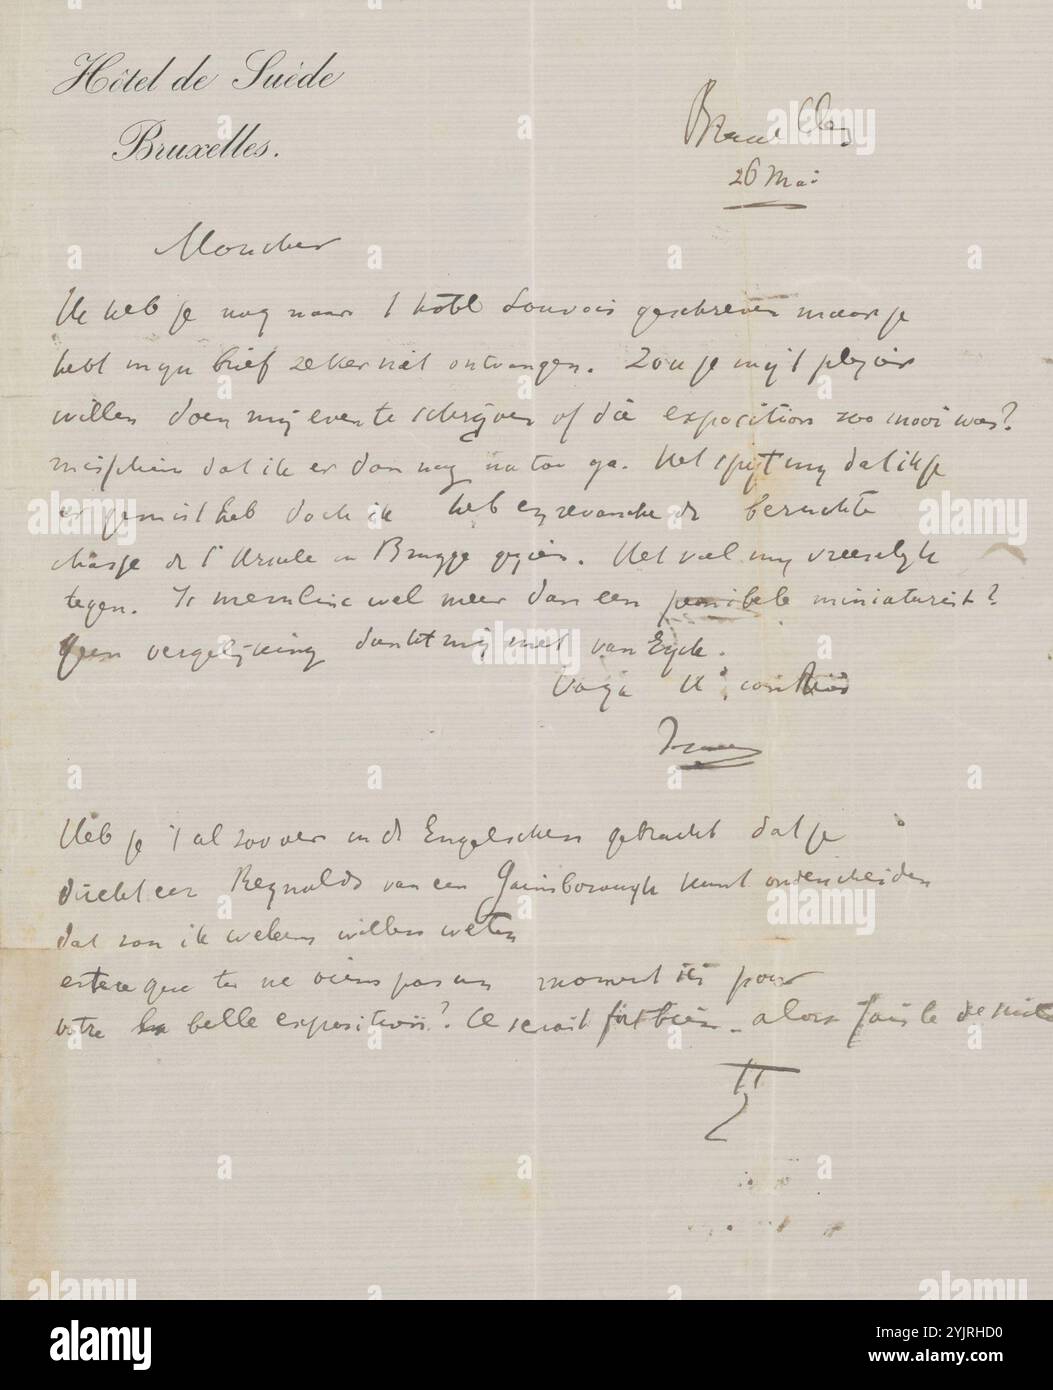 Hôtel de Suède
Bruxelles.
Bruxelles
26 Mai
Mon cher
Ik heb je nog naar l'hotel Louvois geschreven maar je
hebt mijn brief zeker niet ontvangen. Zou je mij 't plezier
willen doen mij even te schrijven of die exposition zoo mooi was?
misschien dat ik er dan nog na toe ga. Het spijt mij dat ik je
er gemist heb doch ik heb en revanche de beruchte
chasse de St Ursule in Brugge gezien. Het viel mij vreeselijk
tegen. Is Memlinc wel meer dan een penibele miniaturist?
Geen vergelijking dunkt mij met van Eyck.
Heb je 't al zoover in de Engelschen gebracht dat je
direkt een Reynolds van een Gainsborough kunt onderscheiden
dat zou ik weleens willen weten
est ce que tu ne viens pas un moment ici pour
votre belle exposition? Ce serait fort bien. alors fais le de suite
a
alamy
Image ID: 2YJRHD0
www.alamy.com